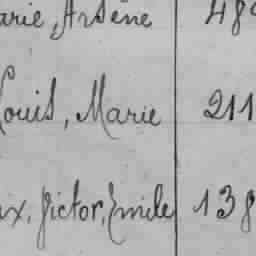 arie, Arsène 48
Louis, Marie 211
ux, Victor, Emile 138